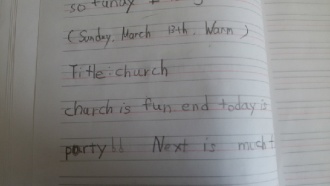 so funny
(Sunday, March 13th, Warm)
Title: church
church is fun. end today is
party!! Next is